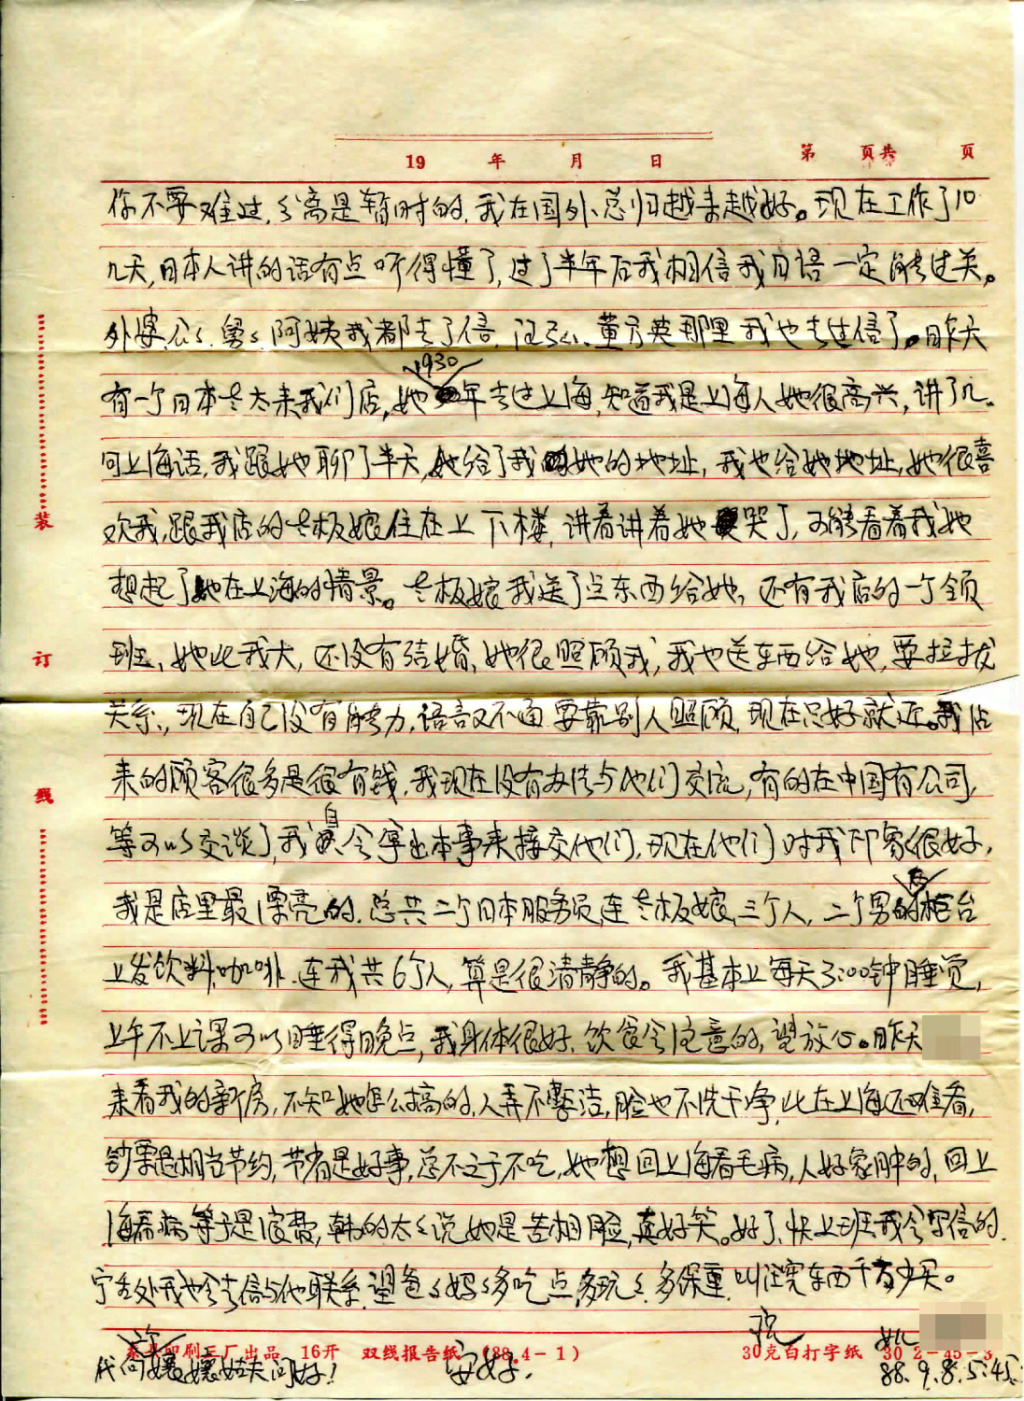 19 年 月 日 第 页共 页
你不要难过,分离是暂时的,我在国外总归越来越好。现在工作了10
几天,日本人讲的话有点听得懂了,过了半年后我相信我日语一定能过关。
外婆、公公、舅舅、阿姨我都去了信, 那里我也去过信了。昨天
1930
有一个日本老太来我们店,她 年去过上海,知道我是上海人她很高兴,讲了几
句上海话,我跟她聊了半天,她给了我她的地址,我也给她地址,她很喜
欢我,跟我店的老板娘住在上下楼,讲着讲着她哭了,可能看着我她
想起了她在上海的情景。老板娘我送了点东西给她,还有我店的一个领
班,她比我大,还没有结婚,她很照顾我,我也送东西给她,要拉拢
关系,现在自己没有能力,语言又不通要靠别人照顾,现在只好就近。我店
来的顾客很多是很有钱,我现在没有办法与他们交流,有的在中国有公司,
等可以交谈了,我自会拿出本事来接交他们,现在他们对我印象很好,
我是店里最漂亮的,总共二个日本服务员,连老板娘三个人,二个男的在柜台
上发饮料、咖啡,连我共6个人,算是很清静的。我基本上每天3:00钟睡觉,
上午不上课可以睡得晚点,我身体很好,饮食会注意的,望放心。昨天
来看我的新房,不知她怎么搞的,人弄不整洁,脸也不洗干净,比在上海还难看,
钞票是相当节约,节省是好事,总不至于不吃,她想回上海看毛病,人好象肿的,回上
海看病等于是浪费,韩的太太说她是苦相脸,真好笑。好了,快上班,我会写信的,
宁舍处我也会去信与他联系,望爸爸妈妈多吃点,多玩玩,多保重,叫汪宪东西千万少买。
祝 女儿
安好.
代向 嬢嬢姑夫问好!
88.9.8.5:45
印刷三厂出品 16开 双线报告纸 (88.4-1) 30克白打字纸 30 2-45-3
装
订
线